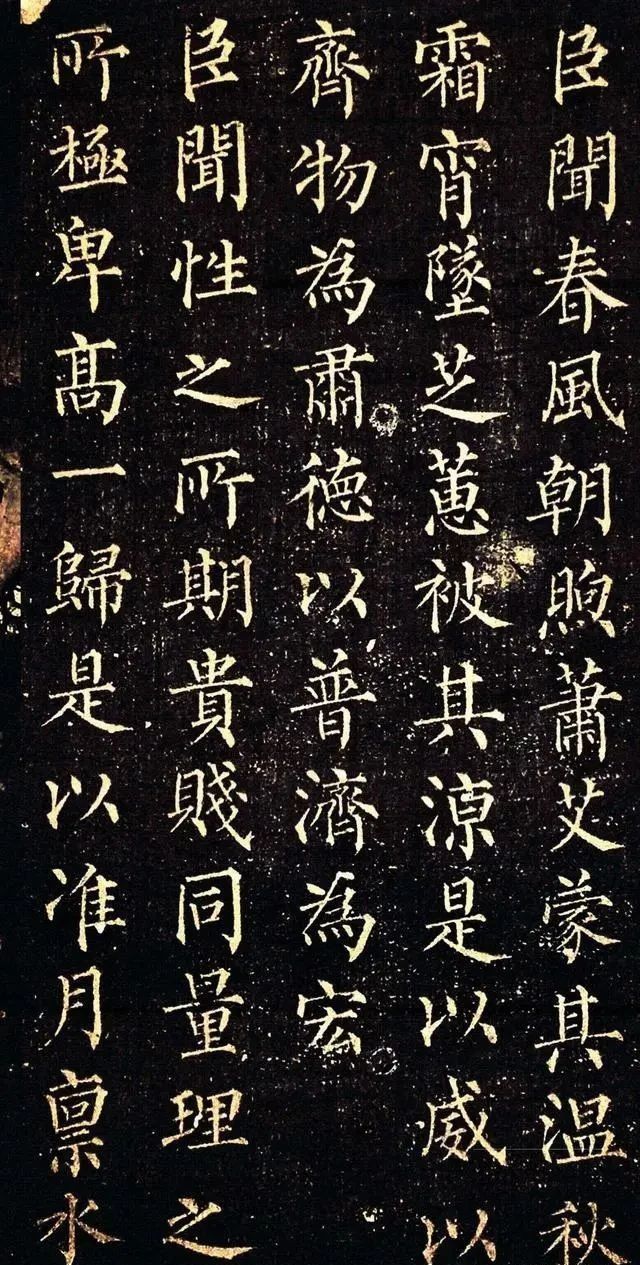 臣聞春風朝煦蕭艾蒙其溫秋
霜宵墜芝蕙被其涼是以威以
齊物為肅德以普濟為宏
臣聞性之所期貴賤同量理之
所極卑高一歸是以准月禀水